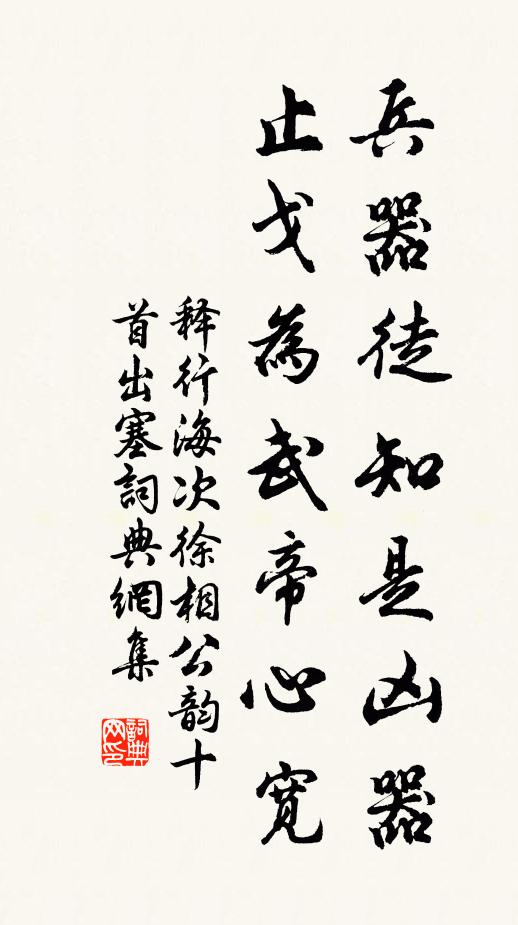 兵器徒知是凶器
止戈為武帝心寬
释行海次徐相公韵十
首出塞詞典網集
詞典
网印